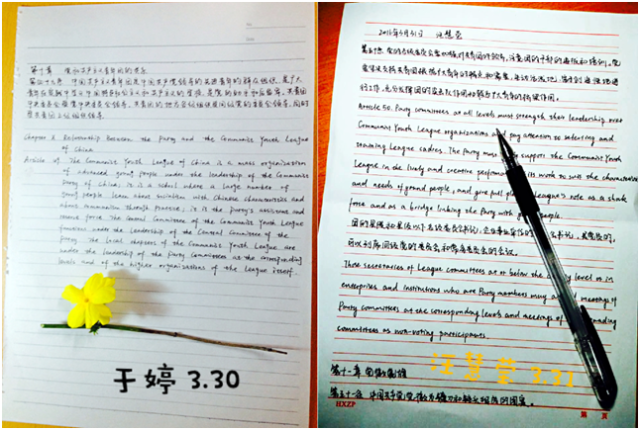 第十章 党和共产主义青年团的关系
第四十九条 中国共产主义青年团是中国共产党领导的先进青年的群众组织,是广大
青年在实践中学习中国特色社会主义和共产主义的学校,是党的助手和后备军。共青团
中央委员会受党中央委员会领导。共青团的地方各级组织受同级党的委员会领导,同时
受共青团上级组织领导。
Chapter X Relationship Between the Party and the Communist Youth League
of China
Article The Communist Youth League of China is a mass organization
of advanced young people under the leadership of the Communist
Party of China; it is a school where a large number of
young people learn about socialism with Chinese characteristics and
about communism through practice; it is the Party's assistant and
reserve force. The Central Committee of the Communist Youth League
functions under the leadership of the Central Committee of the
Party. The local chapters of the Communist Youth League are
under the leadership of the Party committees at the corresponding
levels and of the higher organizations of the League itself.
于婷 3.30
2016年3月31日 汪慧莹
第五十条 党的各级委员会要加强对共青团的领导,注意团的干部的选拔和培训。党
要坚决支持共青团根据广大青年的特点和需要,生动活泼地、富于创造性地进
行工作,充分发挥团的突击队作用和联系广大青年的桥梁作用。
Article 50. Party committees at all levels must strengthen their leadership over
Communist Youth League organizations and pay attention to selecting and
training League cadres. The Party must support the Communist Youth
League in the lively and creative performance its work to suit the characteristics
and needs of young people, and give full League's role as a shock
force and as a bridge linking the Party with people.
团的县级和县级以下各级委员会书记,企业事业单位的 书记,是党员的,
可以列席同级党的委员会和常务委员会的会议。
Those secretaries of League committees at or below the level or in
enterprises and institutions who are Party members may meetings of
Party committees at the corresponding levels and meetings of
committees as non-voting participants.
汪慧莹 3.31
第十一章 党徽党旗
第五十一条 中国共产党党徽为镰刀和锤头组成的图案。
HXZP 第 页